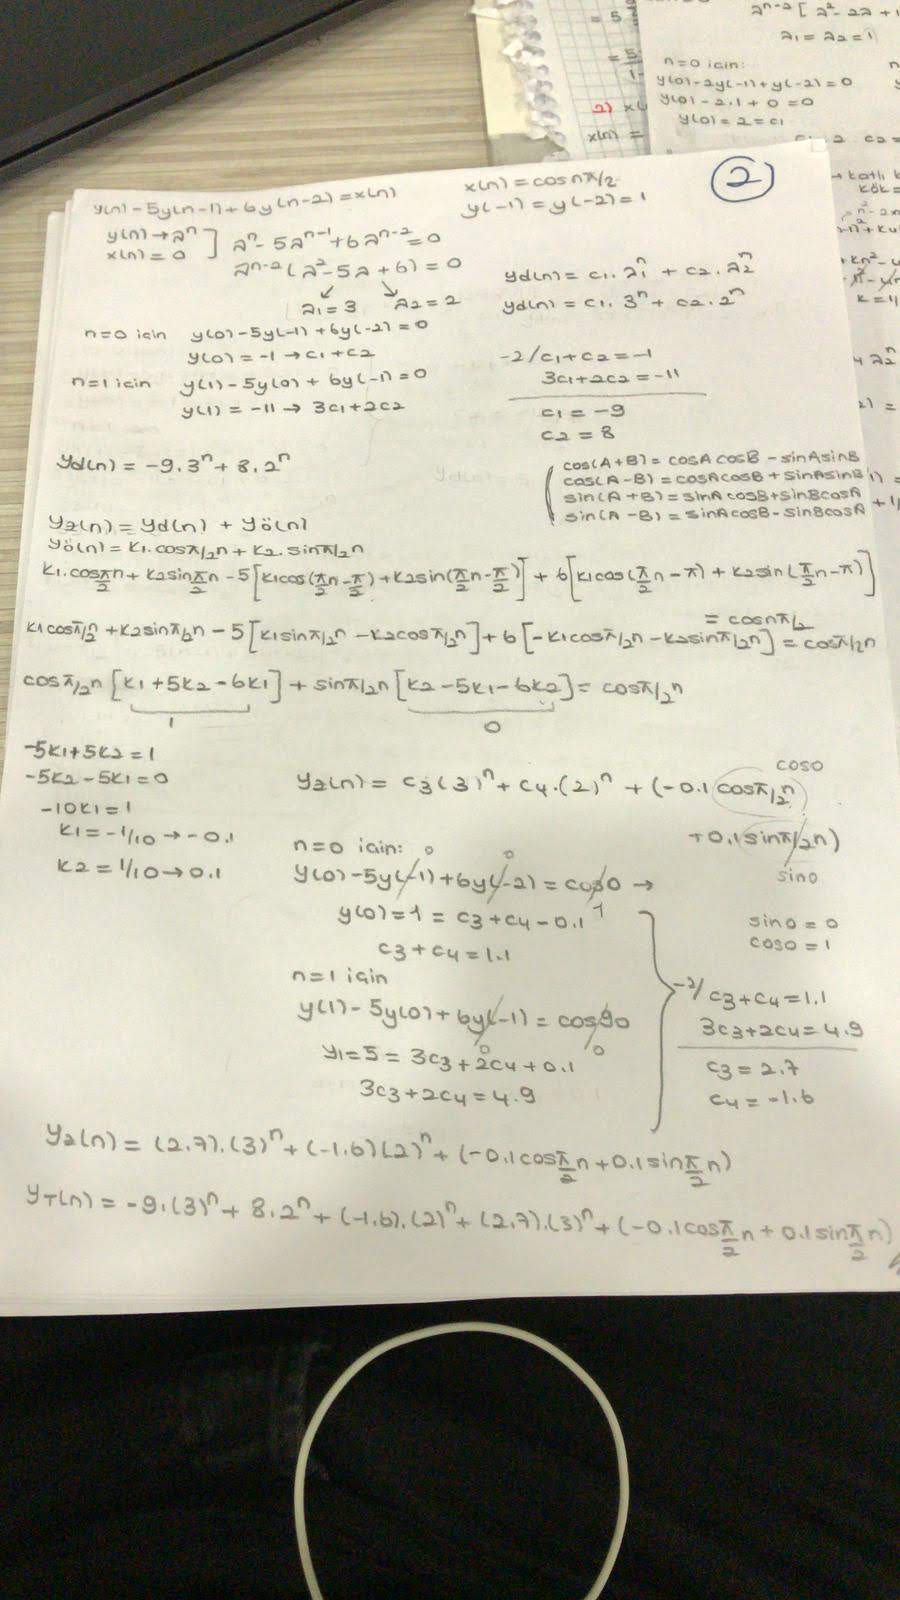 = 5
= 5
2) x(
x(n) =
a^n-2 [a²-2a+1
a1 = a2 = 1
n=0 için:
y(0)-2y(-1)+y(-2)=0
y(0)-2.1+0=0
y(0)=2=c1
c2 =
→ katlı k
kök=
k=1/
②
y(n)-5y(n-1)+6y(n-2)=x(n)
x(n)=cosnπ/2
y(-1)=y(-2)=1
y(n)→a^n
x(n)=0
] a^n-5a^n-1+6a^n-2=0
a^n-2(a²-5a+6)=0
a1=3 a2=2
yd(n)=c1.a1^n+c2.a2^n
yd(n)=c1.3^n+c2.2^n
n=0 için y(0)-5y(-1)+6y(-2)=0
y(0)=-1→c1+c2
n=1 için y(1)-5y(0)+6y(-1)=0
y(1)=-11→3c1+2c2
-2/c1+c2=-1
3c1+2c2=-11
c1=-9
c2=8
yd(n)=-9.3^n+8.2^n
cos(A+B)=cosAcosB-sinAsinB
cos(A-B)=cosAcosB+sinAsinB
sin(A+B)=sinAcosB+sinBcosA
sin(A-B)=sinAcosB-sinBcosA
yz(n)=yd(n)+yö(n)
yö(n)=k1.cosπ/2n+k2.sinπ/2n
k1.cosπ/2n+k2sinπ/2n-5[k1cos(π/2n-π/2)+k2sin(π/2n-π/2)]+6[k1cos(π/2n-π)+k2sin(π/2n-π)]
=cosnπ/2
k1cosπ/2n+k2sinπ/2n-5[k1sinπ/2n-k2cosπ/2n]+6[-k1cosπ/2n-k2sinπ/2n]=cosπ/2n
cosπ/2n[k1+5k2-6k1]+sinπ/2n[k2-5k1-6k2]=cosπ/2n
1 0
-5k1+5k2=1
-5k2-5k1=0
-10k1=1
k1=-1/10→-0.1
k2=1/10→0.1
cos0
yz(n)=c3(3)^n+c4.(2)^n+(-0.1cosπ/2n
+0.1sinπ/2n)
sin0
n=0 için: 0 0
y(0)-5y(-1)+6y(-2)=cos0→
1
y(0)=1=c3+c4-0.1
c3+c4=1.1
n=1 için
y(1)-5y(0)+6y(-1)=cos90
0 0
y1=5=3c3+2c4+0.1
3c3+2c4=4.9
sin0=0
cos0=1
-2/c3+c4=1.1
3c3+2c4=4.9
c3=2.7
c4=-1.6
yz(n)=(2.7).(3)^n+(-1.6)(2)^n+(-0.1cosπ/2n+0.1sinπ/2n)
yT(n)=-9.(3)^n+8.2^n+(-1.6).(2)^n+(2.7).(3)^n+(-0.1cosπ/2n+0.1sinπ/2n)